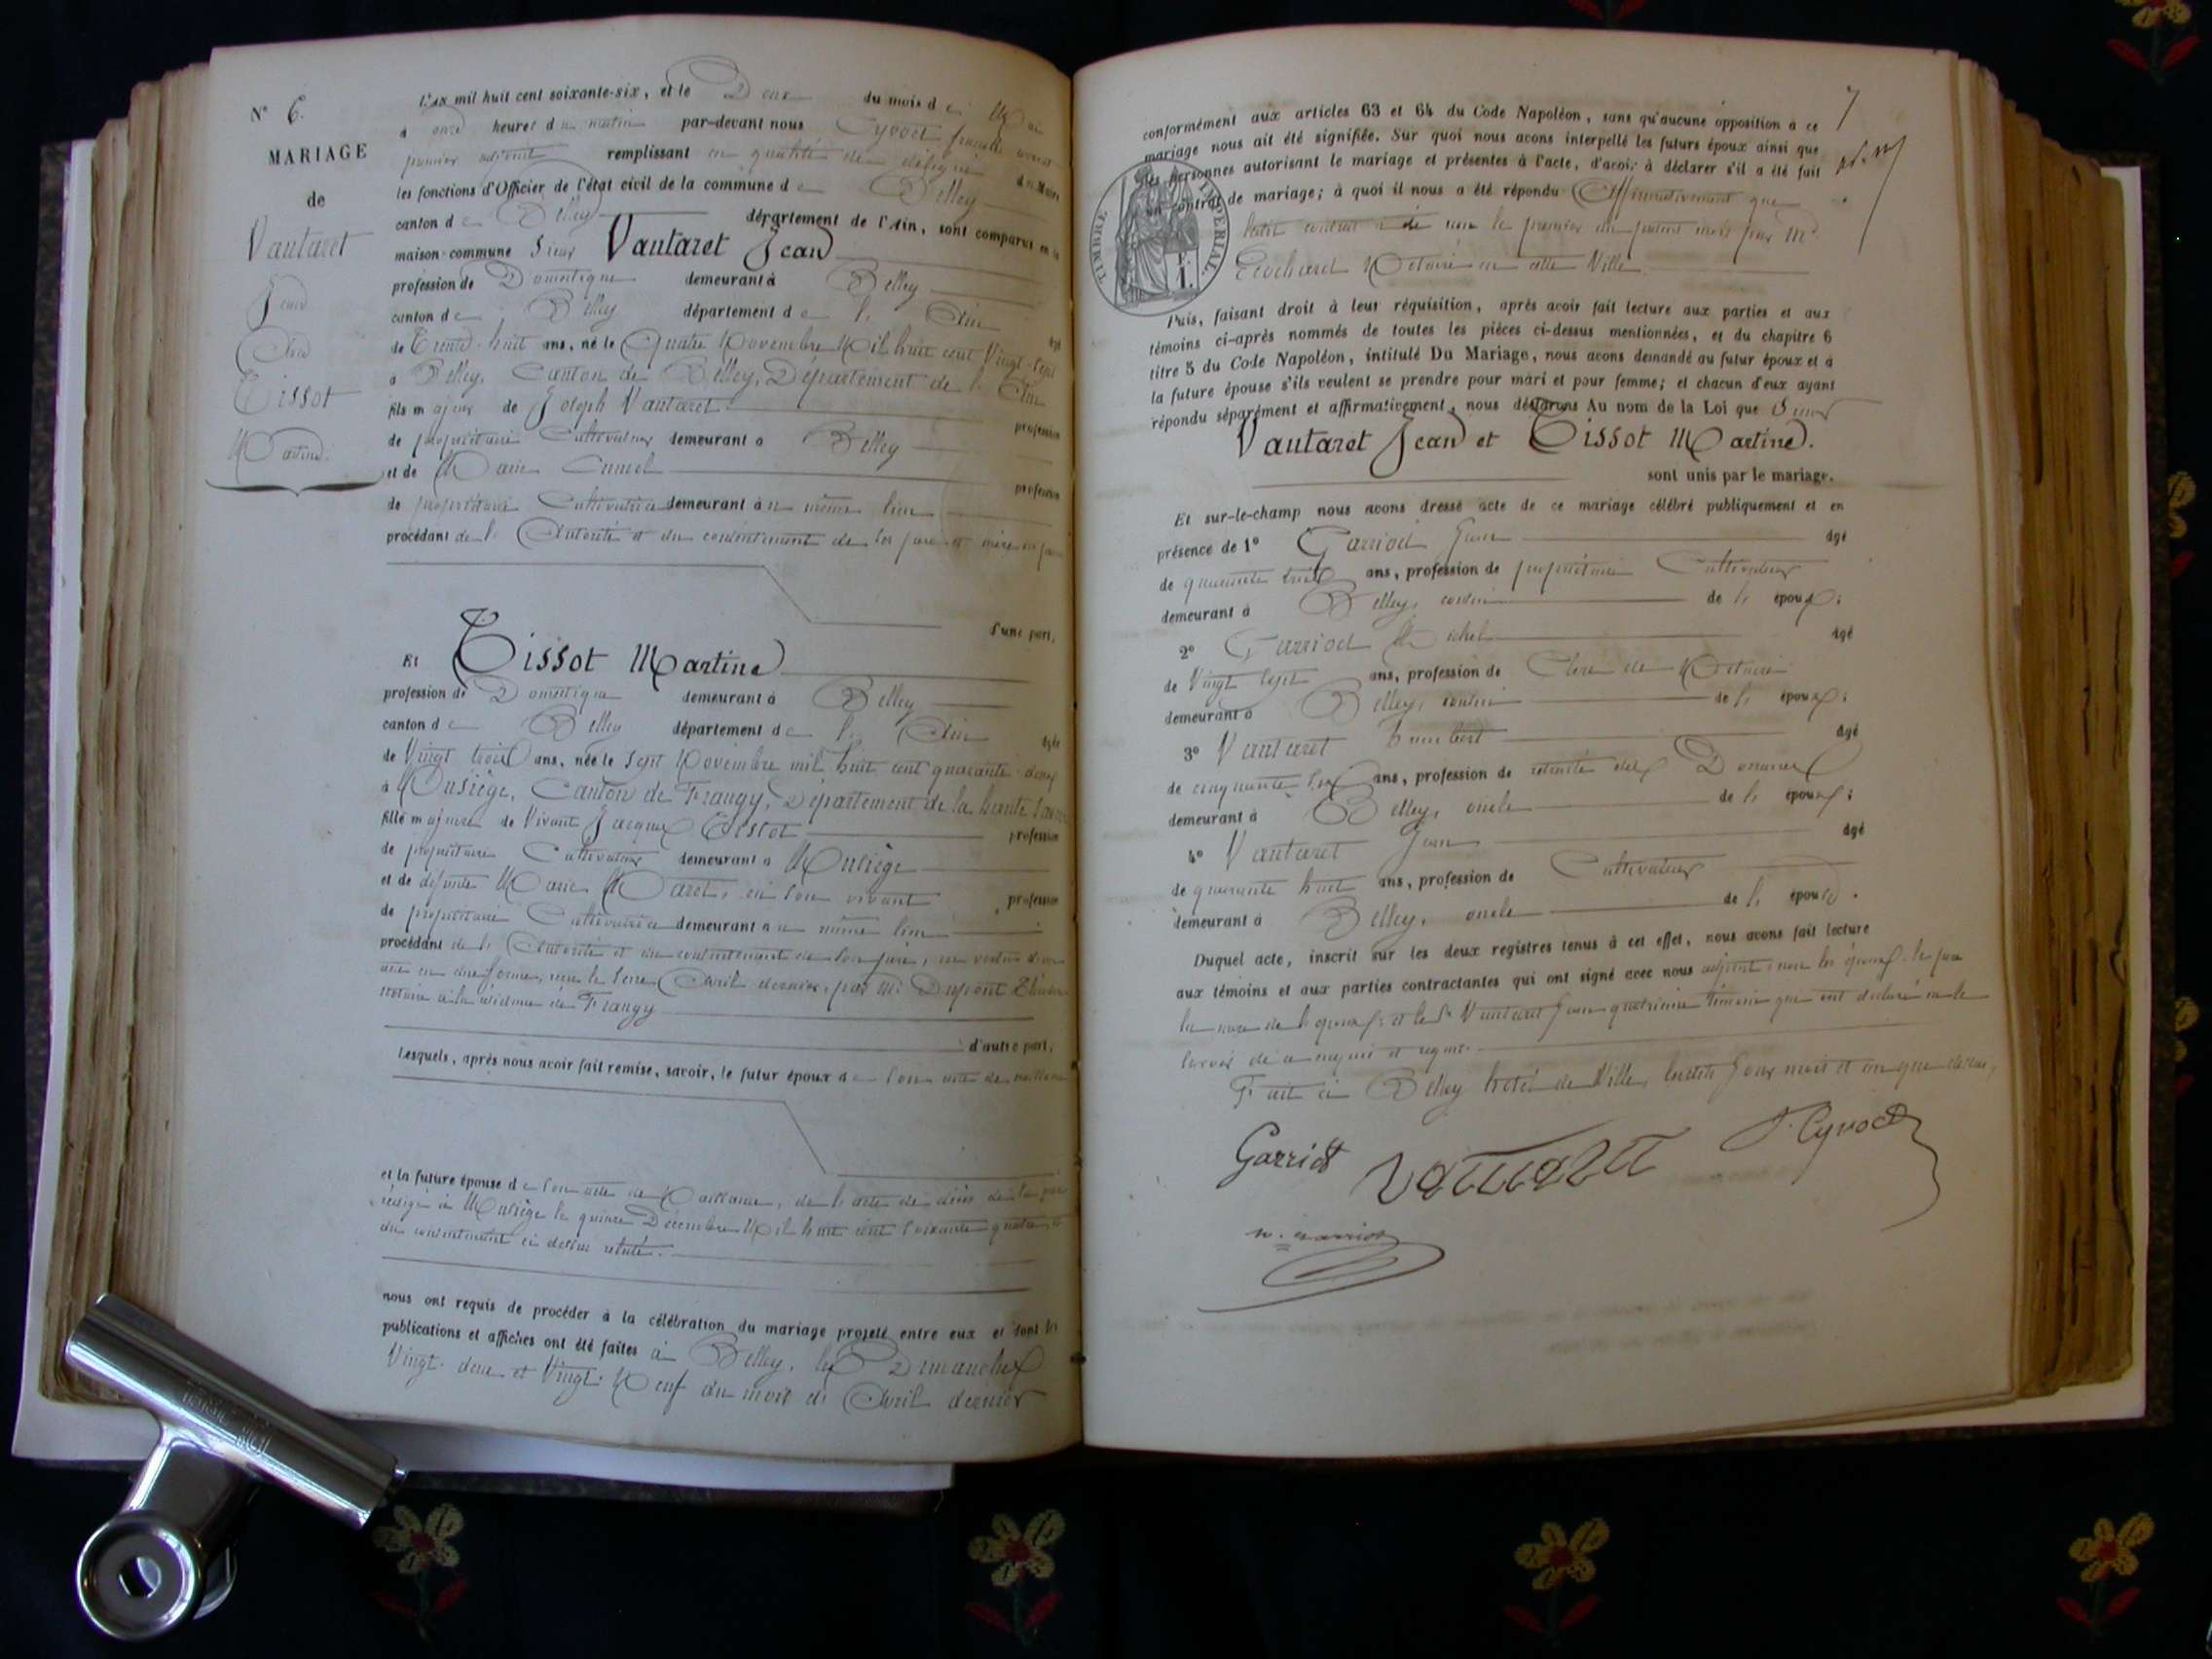 N° 6.
MARIAGE
de
Vautaret
Jean
Et
Tissot
Martine.
L'An mil huit cent soixante-six, et le Deux du mois de Mai
à onze heures du matin par-devant nous Cyvoct
premier adjoint remplissant en qualité de délégué du Maire
les fonctions d'Officier de l'état civil de la commune de Belley
canton de Belley département de l'Ain, sont comparus en la
maison commune Sieur Vautaret Jean
profession de Domestique demeurant à Belley
canton de Belley département de l'Ain âgé
de Trente-huit ans, né le Quatre Novembre Mil huit cent Vingt-sept
à Belley, Canton de Belley, Département de l'Ain
fils majeur de Joseph Vautaret profession
de propriétaire Cultivateur demeurant à Belley
et de Marie profession
de propriétaire Cultivatrice demeurant au même lieu
procédant de l'Autorité et du consentement de ses père et mère
d'une part,
Et Tissot Martine
profession de Domestique demeurant à Belley
canton de Belley département de l'Ain âgée
de Vingt trois ans, née le sept Novembre mil huit cent quarante-deux
à Musiège, Canton de Frangy, Département de la haute Savoie
fille majeure de Vivant Jacques Tissot profession
de propriétaire Cultivateur demeurant à Musiège
et de défunte Marie Maret, en son vivant profession
de propriétaire Cultivatrice demeurant au même lieu
procédant de l'Autorité et du consentement de son père, en vertu d'un
acte en due forme, reçu le seize Avril dernier, par Me Dupont
notaire à la résidence de Frangy
d'autre part,
Lesquels, après nous avoir fait remise, savoir, le futur époux de son acte de naissance
et la future épouse de son acte de Naissance, de l'acte de décès de sa mère
rédigé à Musiège le quinze Décembre Mil huit cent soixante quatre, et
du consentement ci dessus relaté.
nous ont requis de procéder à la célébration du mariage projeté entre eux et dont les
publications et affiches ont été faites à Belley, les Dimanches
Vingt-deux et Vingt-Neuf du mois d'Avril dernier
7
TIMBRE IMPERIAL
conformément aux articles 63 et 64 du Code Napoléon, sans qu'aucune opposition à ce
mariage nous ait été signifiée. Sur quoi nous avons interpellé les futurs époux ainsi que
les personnes autorisant le mariage et présentes à l'acte, d'avoir à déclarer s'il a été fait
un contrat de mariage; à quoi il nous a été répondu Affirmativement que
ledit contrat a été reçu le premier du présent mois par Me
Ecochard Notaire en cette Ville
Puis, faisant droit à leur réquisition, après avoir fait lecture aux parties et aux
témoins ci-après nommés de toutes les pièces ci-dessus mentionnées, et du chapitre 6
titre 5 du Code Napoléon, intitulé Du Mariage, nous avons demandé au futur époux et à
la future épouse s'ils veulent se prendre pour mari et pour femme; et chacun d'eux ayant
répondu séparément et affirmativement, nous déclarons Au nom de la Loi que Sieur
Vautaret Jean et Tissot Martine.
sont unis par le mariage.
Et sur-le-champ nous avons dressé acte de ce mariage célébré publiquement et en
présence de 1° Garriod Jean âgé
de quarante trois ans, profession de propriétaire Cultivateur
demeurant à Belley, cousin de l'époux;
2° Garriod Michel âgé
de Vingt sept ans, profession de Clerc de Notaire
demeurant à Belley, cousin de l'époux;
3° Vautaret humbert âgé
de cinquante six ans, profession de retraité des Douanes
demeurant à Belley, oncle de l'époux;
4° Vautaret Jean âgé
de quarante huit ans, profession de Cultivateur
demeurant à Belley, oncle de l'époux.
Duquel acte, inscrit sur les deux registres tenus à cet effet, nous avons fait lecture
aux témoins et aux parties contractantes qui ont signé avec nous adjoint, non les époux, le père
la mère de l'époux, et le Sr Vautaret Jean quatrième témoin qui ont déclaré ne le
savoir de ce enquis et requis.
Fait à Belley hôtel de Ville, lesdits Jour mois et an que dessus,
Garriod Vautaret F. Cyvoct
M. Garriod